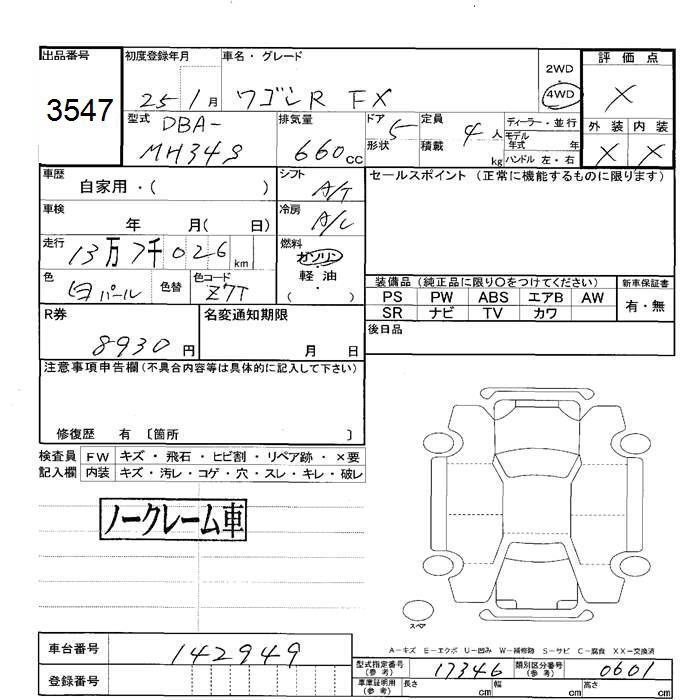 出品番号 初度登録年月 車名・グレード 評価点
3547 25 1月 ワゴンR FX 2WD 4WD X
型式 DBA-MH34S 排気量 660cc ドア形状 5 定員 4人 積載 kg ディーラー・並行 モデル年式 年 ハンドル 左・右 外装 内装
X X
車歴 自家用・( ) シフト A/T セールスポイント(正常に機能するものに限ります)
車検 年 月( 日) 冷房 A/C
走行 13万7千026km 燃料 ガソリン
軽油
・
( )
色 白パール 色替 色コード Z7T 装備品(純正品に限り○をつけてください) 新車保証書
PS PW ABS エアB AW 有・無
SR ナビ TV カワ
R券 8930円 名変通知期限 月 日 後日品
注意事項申告欄(不具合内容等は具体的に記入して下さい)
修復歴 有 〔箇所 〕
検査員 FW キズ・飛石・ヒビ割・リペア跡・×要
記入欄 内装 キズ・汚レ・コゲ・穴・スレ・キレ・破レ
ノークレーム車
スペア
A-キズ E-エクボ U-凹み W-補修跡 S-サビ C-腐食 XX-交換済
車台番号 142949
型式指定番号(参考) 17346 類別区分番号(参考) 0601
登録番号 車庫証明用(参考) 長さ cm 幅 cm 高さ cm